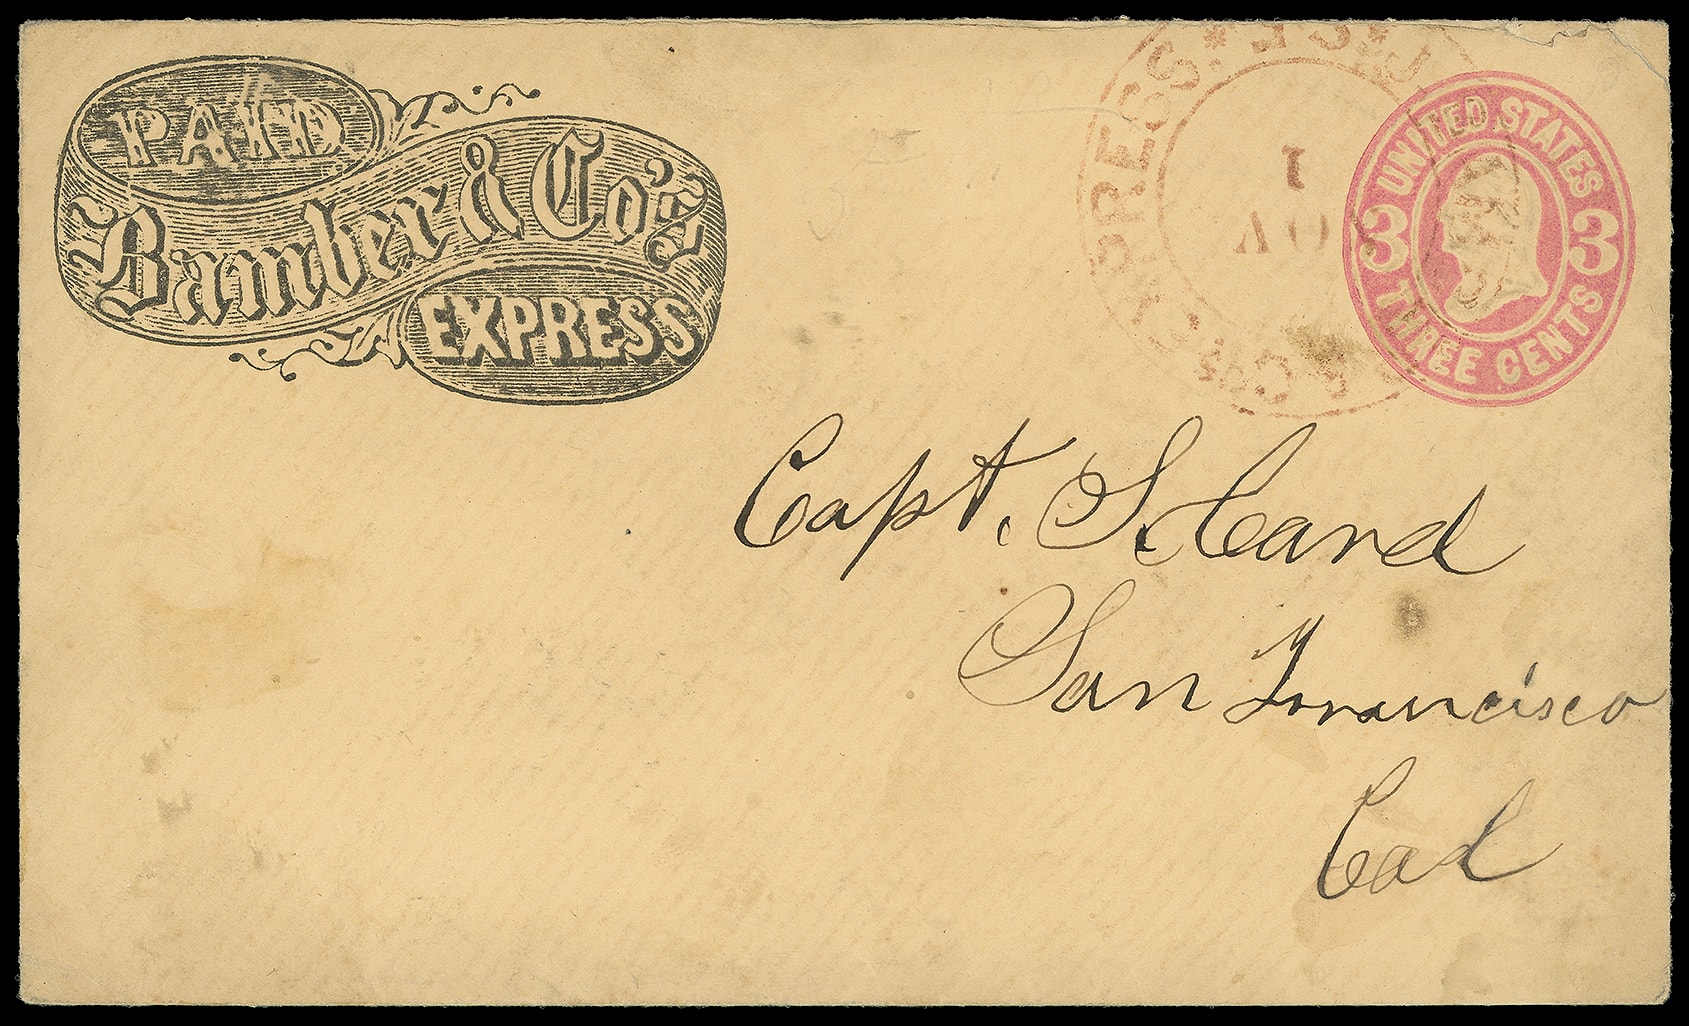 PAID
Bamber & Co's
EXPRESS
& Co's EXPRESS.
NOV
1
UNITED STATES
3 3
THREE CENTS
Capt. S. Card
San Francisco
Cal